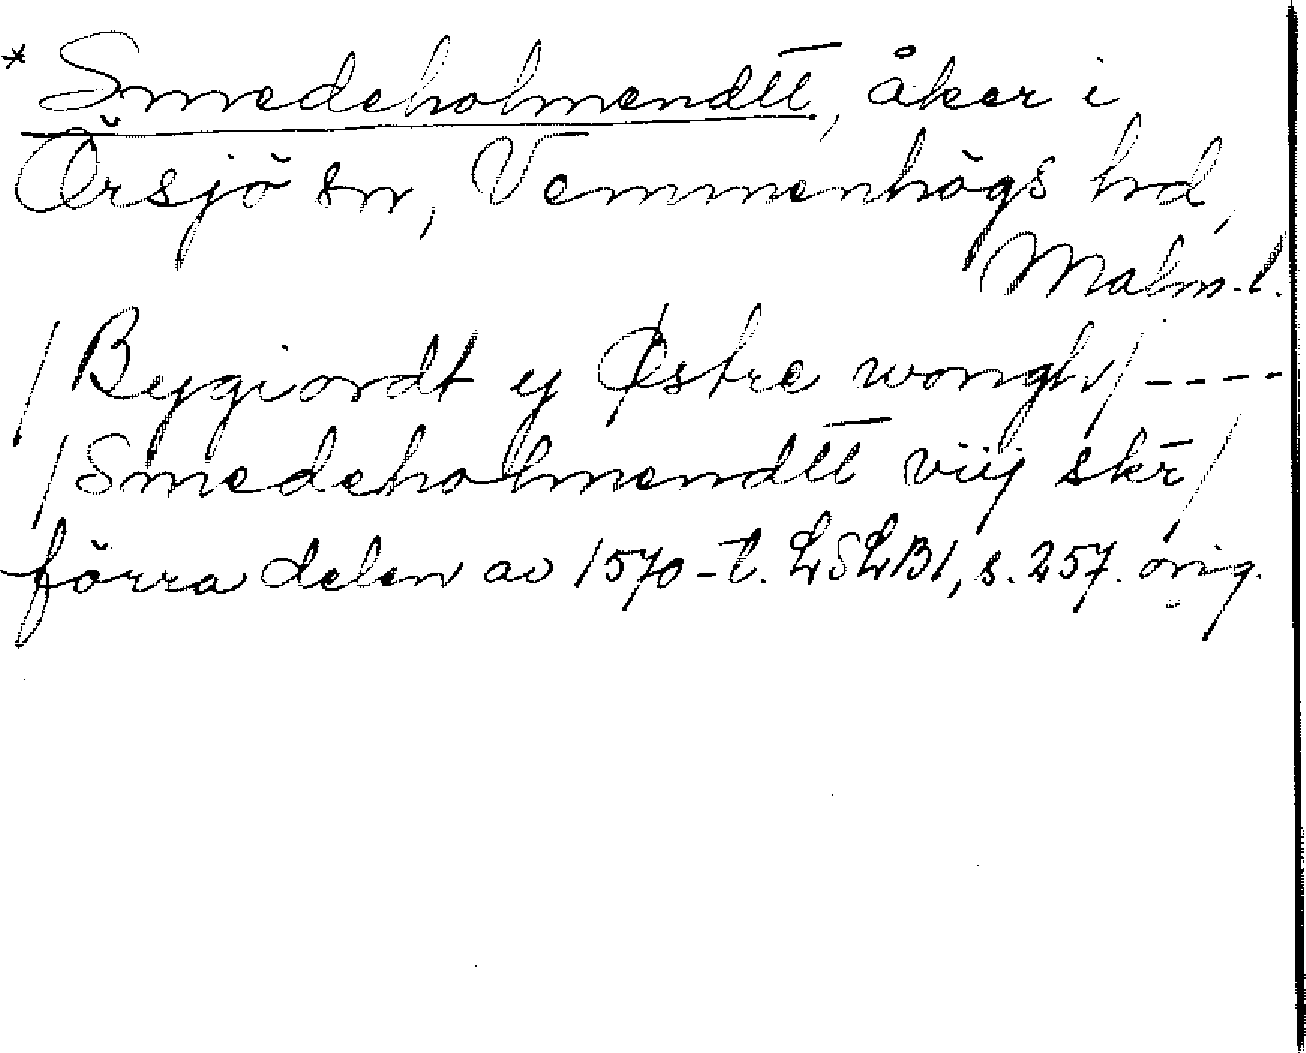 * Smedeholmendtt̄, åker i
Örsjö sn, Vemmenhögs hd,
Malm. l.
/Bygiordt y Østre wongh/ ----
/Smedeholmendtt̄ viij skr̄/
förra delen av 1570-t. LSLB1, s. 257. orig.